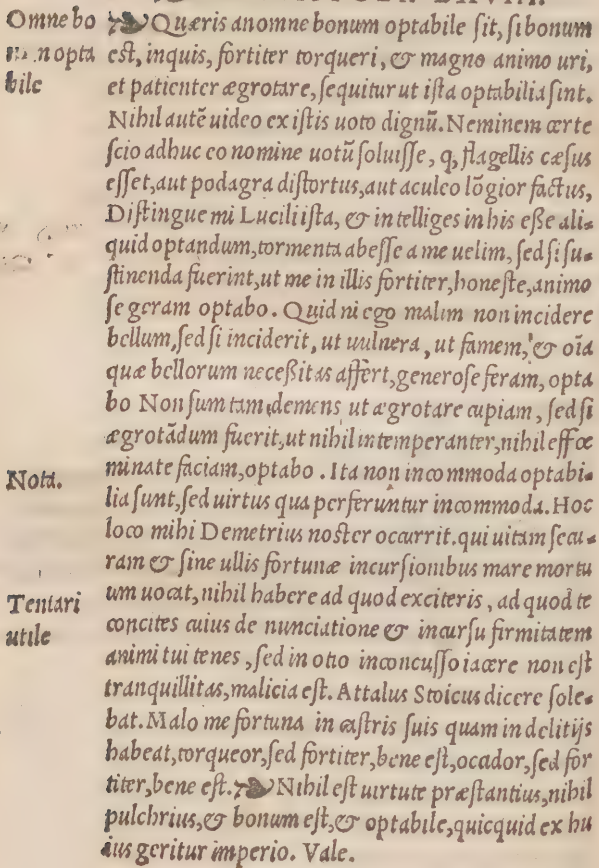 Omne bo
num opta
bile
Quæris an omne bonum optabile sit, si bonum
est, inquis, fortiter torqueri, & magno animo uri,
et patienter ægrotare, sequitur ut ista optabilia sint.
Nihil autē uideo ex istis uoto dignū. Neminem certe
scio adhuc eo nomine uotū soluisse, q, flagellis cæsus
esset, aut podagra distortus, aut aculeo lōgior factus,
Distingue mi Lucili ista, & intelliges in his eße ali-
quid optandum, tormenta abesse a me uelim, sed si su-
stinenda fuerint, ut me in illis fortiter, honeste, animo
se geram optabo. Quid ni ego malim non incidere
bellum, sed si inciderit, ut uulnera, ut famem, & oīa
quæ bellorum neceßitas affert, generose feram, opta
bo Non sum tam demens ut ægrotare cupiam, sed si
ægrotādum fuerit, ut nihil intemperanter, nihil effœ
minate faciam, optabo. Ita non incommoda optabi-
Nota.
lia sunt, sed uirtus qua perferuntur incommoda. Hoc
loco mihi Demetrius noster ocurrit. qui uitam secu-
ram & sine ullis fortunæ incursionibus mare mortu
um uocat, nihil habere ad quod exciteris, ad quod te
Tentari
utile
concites cuius de nunciatione & incursu firmitatem
animi tui tenes, sed in otio inconcusso iacere non est
tranquillitas, malicia est. Attalus Stoicus dicere sole-
bat. Malo me fortuna in castris suis quam in delitijs
habeat, torqueor, sed fortiter, bene est, ocador, sed for
titer, bene est. Nihil est uirtute præstantius, nihil
pulchrius, & bonum est, & optabile, quicquid ex hu
ius geritur imperio. Vale.